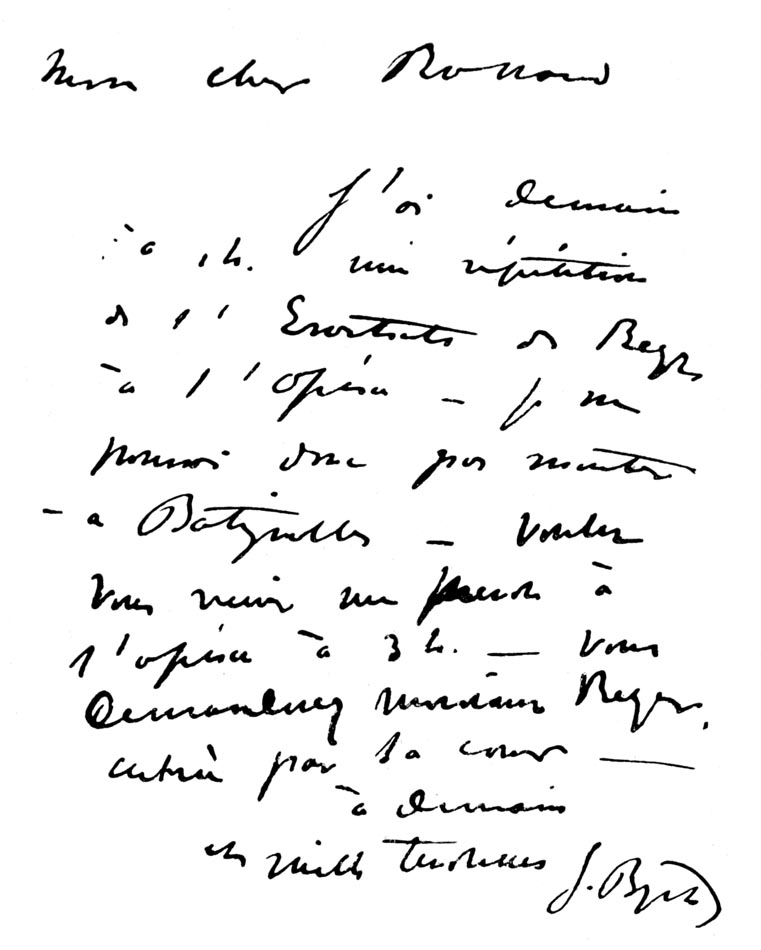 Mon cher
J'ai demain
à 1 h. une répétition
de l'Erostrate de Reyer
à l'Opéra – je ne
pourrai donc pas monter
à Batignolles – voulez
vous venir me prendre à
l'opéra à 3 h. — vous
demanderez monsieur Reyer,
entrée par la cour —
à demain
et mille tendresses G. Bizet